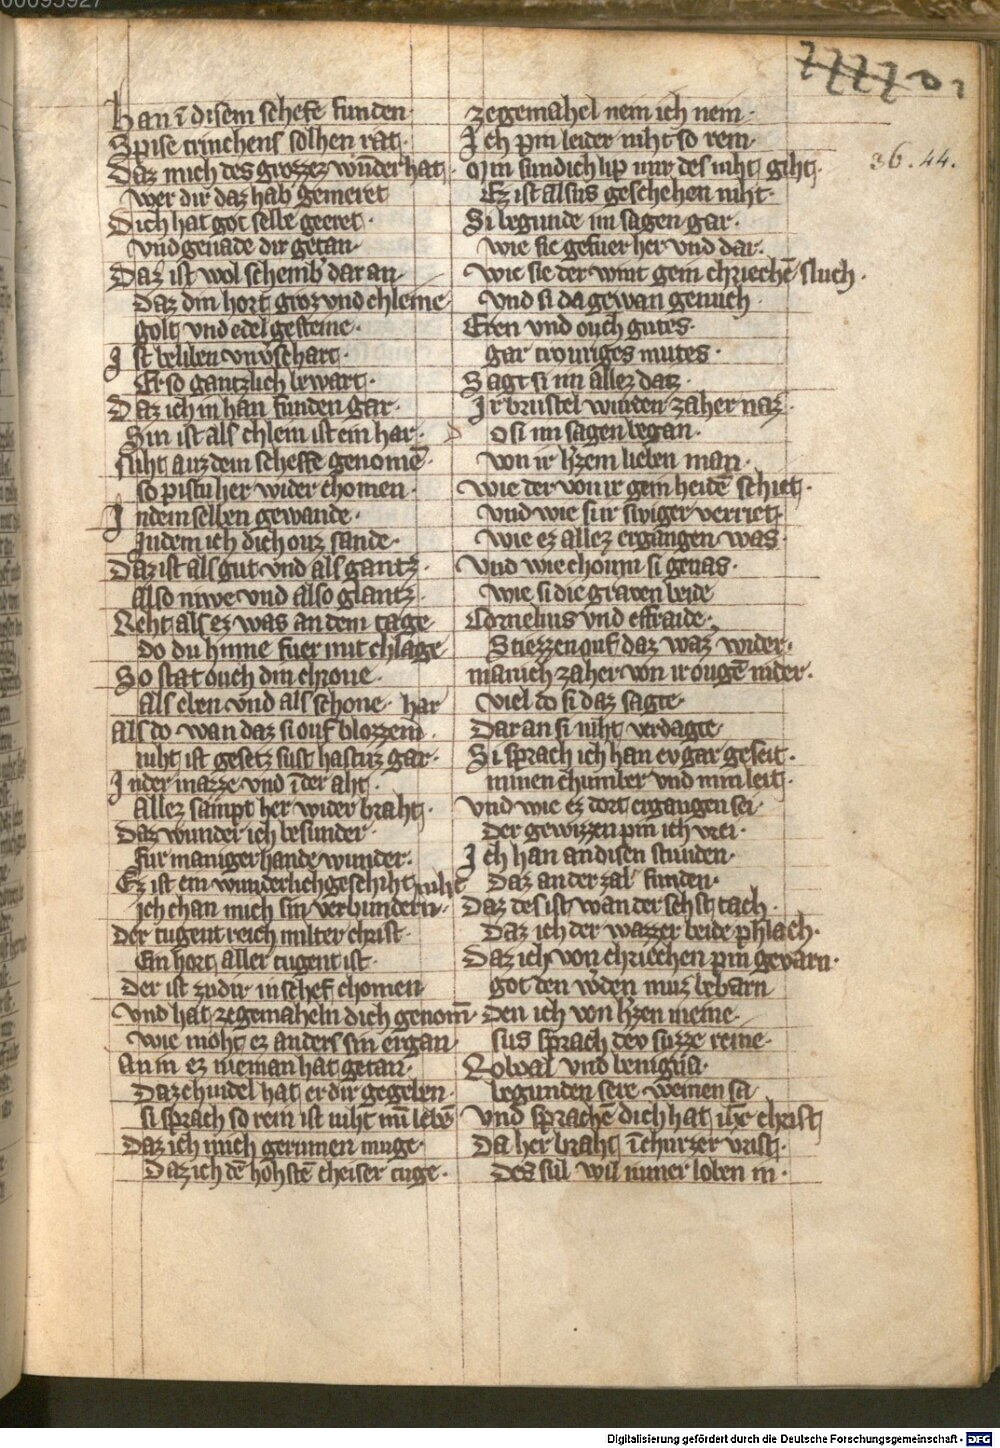 han ī disem scheffe funden
Spise trinchens solhen rat
Daz mich des grozzez wūder hat
wer dir daz hab gemeret
Dich hat got selbe geeret
vnd genade dir getan
Daz ist wol schemb dar an
Daz din hort groz vnd chleine
golt vnd edel gesteine
Ist beliben vnv̄schart
Er so gantzlich bewart
Daz ich in han funden gar
Sin ist als chlein ist ein har
Niht auz dem scheffe genomē
so pistu her wider chomen
In dem selben gewande
In dem ich dich ouz sande
Daz ist als gut vnd als gantz
Also niwe vnd also glantz
Reht als ez was an dem tage
do du hinne fuer mit chlage
So stat ouch din chrone
Als eben vnd als schone har
Als do wan daz si ouf blozzem
niht ist gesetz sust hastuz gar
In der mazze vnd ī der aht
Allez sampt her wider braht
Daz wunder ich besunder
Fur maniger hande wunder
Ez ist ein wunderlich geschiht niht
ich chan mich sin verwundern
Der tugent reich milter christ
Ein hort aller tugent ist
Der ist zu dir in schef chomen
Vnd hat ze gemaheln dich genom̄
wie moht ez anders sin ergan
An in ez nieman hat getan
Daz chindel hat er dir gegeben
si sprach so rein ist niht mī lebē
Daz ich mich gerumen muge
Daz ich dē hohstē cheiser tuge
ze gemahel nem ich nem
Ich pin leider niht so rein
Min sundich lip mir des niht giht
Ez ist alsus geschehen niht
Si begunde im sagen gar
wie sie gefuer her vnd dar
wie sie der wint gein chriechē sluch
Vnd si da gewan genuch
Eren vnd ouch gutes
gar trouriges mutes
Sagt si im allez datz
Ir brustel wurden zaher naz
Do si im sagen began
von ir lizem lieben man
wie der von ir gein heidē schiet
vnd wie sur swiger verriet
wie ez allez ergangen was
Vnd wie choum si genas
wie si die graven beide
Cornelius vnd effraide
Stiezzen ouf daz waz wider
manich zaher von ir ougē nider
Viel do si daz sagte
Dar an si niht verdagte
Si sprach ich han ev gar geseit
minen chumber vnd min leit
Vnd wie ez dort ergangen sei
der gewizzen pin ich vrei
Ich han an disen stunden
Daz an der zal funden
Daz des ist wan der sehst tach
Daz ich der wazzer beide phlach
Daz ich von chriechen pin gevarn
got den w̄den muz bebarn
Den ich von lizen meine
sus sprach dev suzze reine
Lobval vnd benigna
begunden sere weinen sa
Vnd sprachē dich hat ih̄c christ
Da her braht ī churzer vrist
Des sul wir immer loben in
36.44.
Digitalisierung gefördert durch die Deutsche Forschungsgemeinschaft - DFG